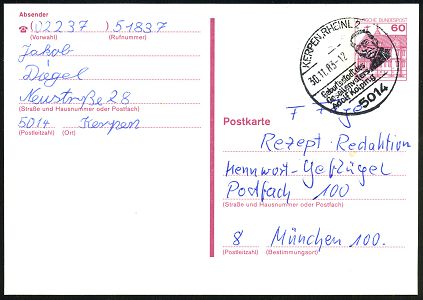 Absender
☎ (02237 ) 51837
(Vorwahl) (Rufnummer)
Jakob
Dägel
Neustraße 28
(Straße und Hausnummer oder Postfach)
5014 Kerpen
(Postleitzahl) (Ort)
KERPEN, RHEINL 2
30.11.83-12
Geburtsstadt des
Gesellenvaters
Adolf Kolping
5014
DEUTSCHE BUNDESPOST
60
Postkarte
Rezept-Redaktion
Kennwort-Geflügel
Postfach 100
(Straße und Hausnummer oder Postfach)
8 München 100.
(Postleitzahl) (Bestimmungsort)